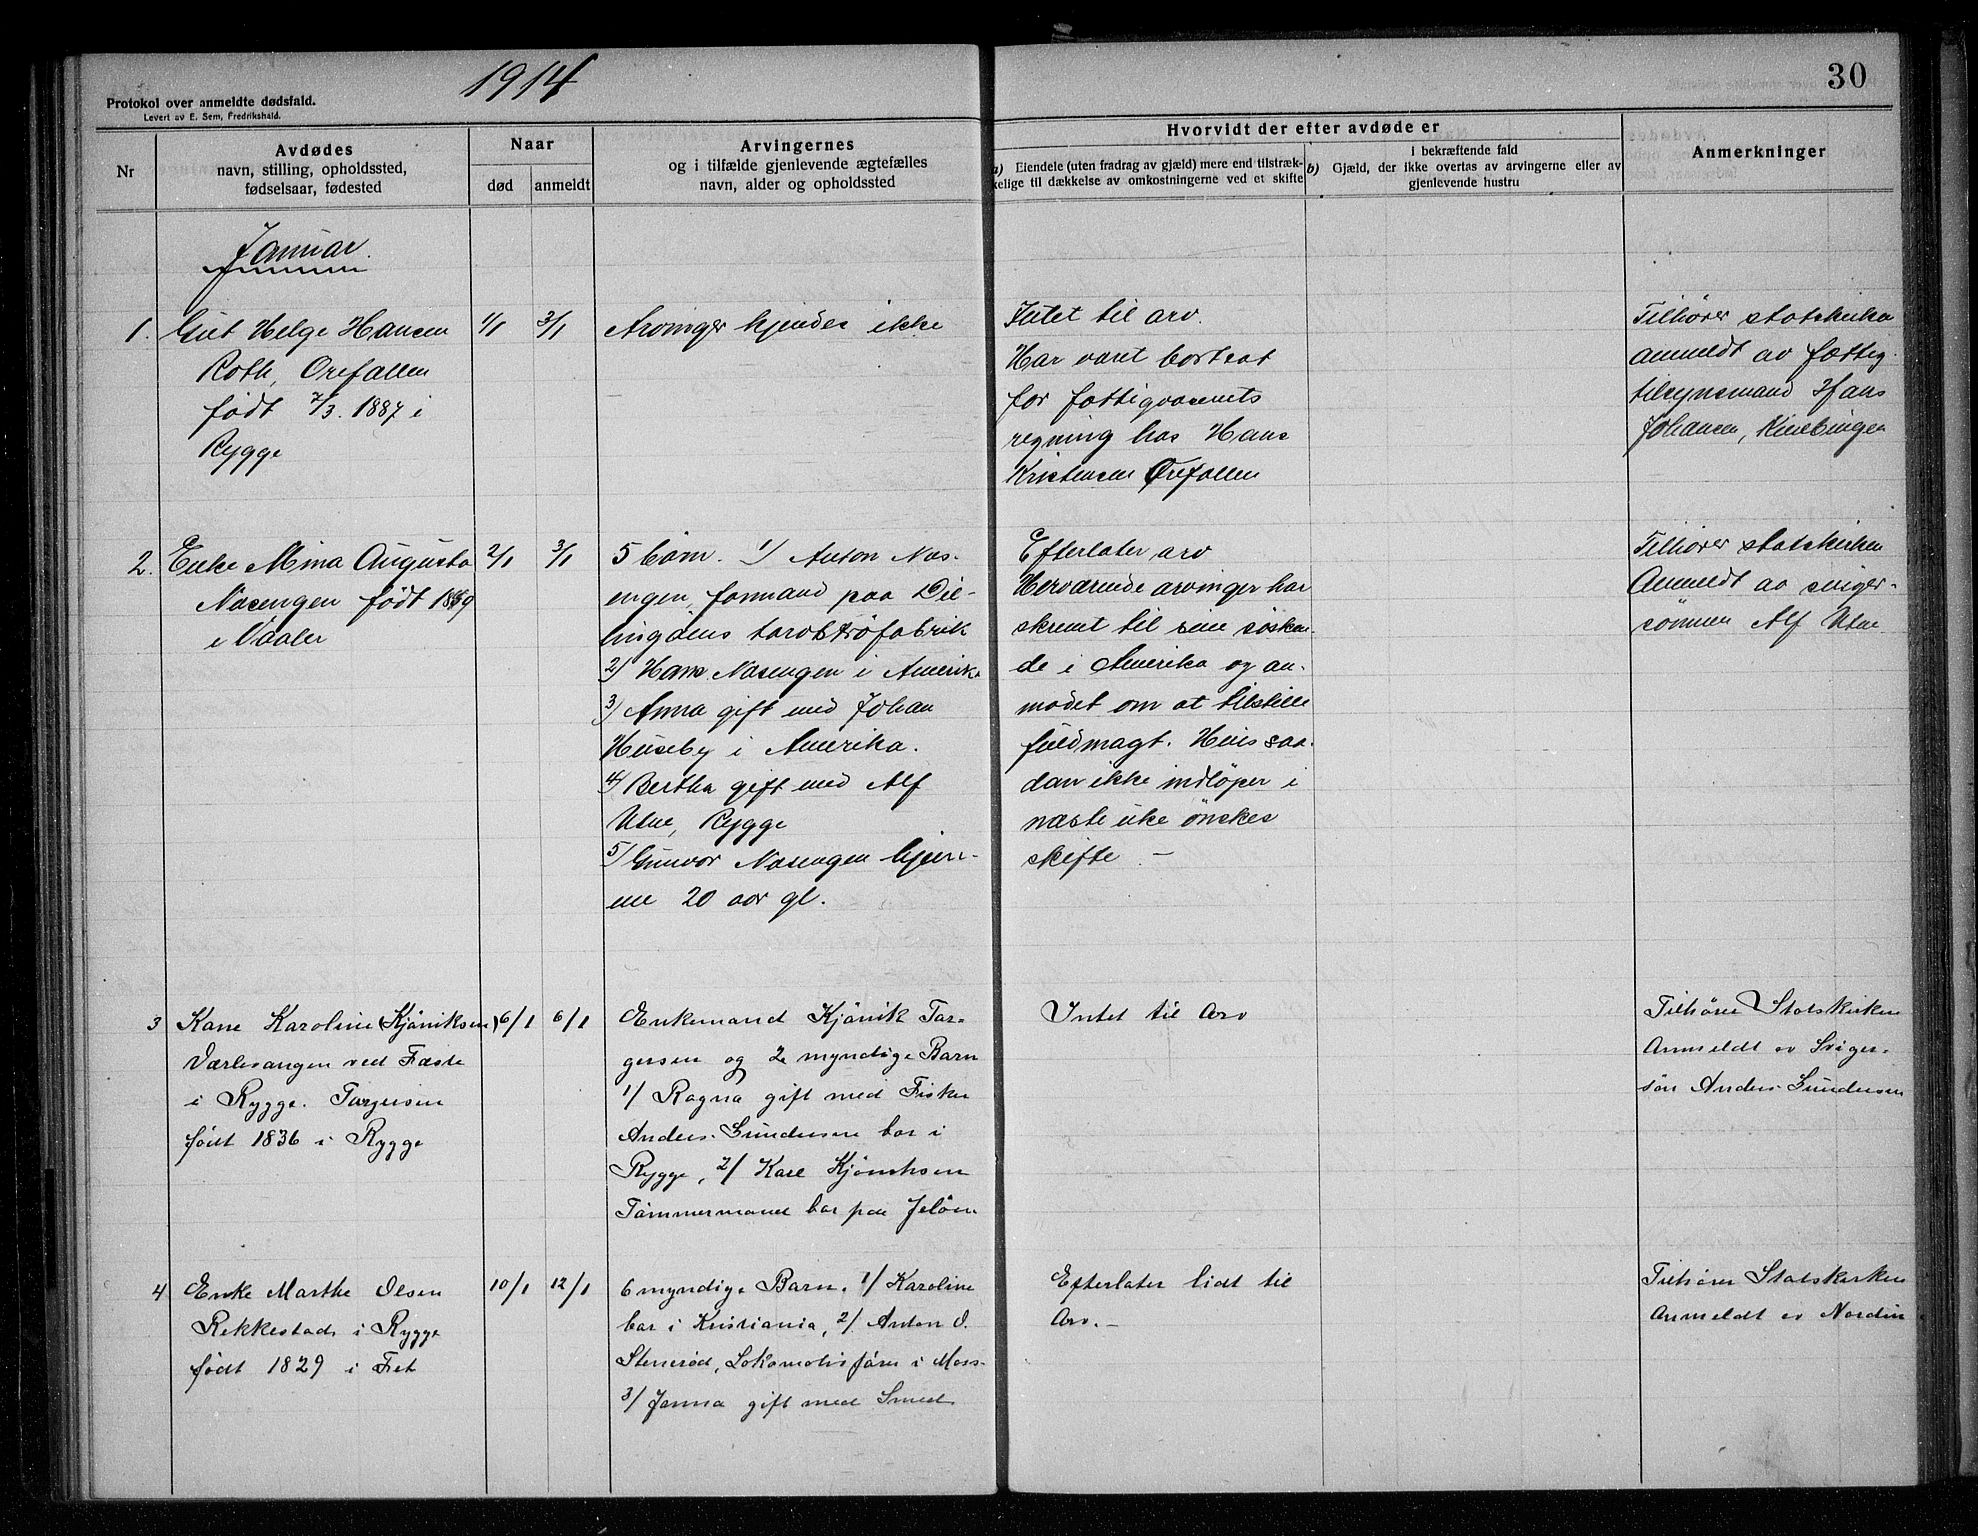 1914
30
Protokol over anmeldte dødsfald.
Levert av E. Sem, Fredrikshald.
Nr
Avdødes
navn, stilling, opholdssted,
fødselsaar, fødested
Naar
død
anmeldt
Arvingernes
og i tilfælde gjenlevende ægtefælles
navn, alder og opholdssted
Hvorvidt der efter avdøde er
a) Eiendele (uten fradrag av gjæld) mere end tilstræk-
kelige til dækkelse av omkostningerne ved et skifte
i bekræftende fald
b) Gjæld, der ikke overtas av arvingerne eller av
gjenlevende hustru
Anmerkninger
Januar.
1.
Gut Helge Hansen
Roth, Orefallen
født 2/3. 1887 i
Rygge
1/1
3/1
Arvinger kjendes ikke
Intet til arv.
Har været bortsat
for fattigvæsenets
regning hos Hans
Kristensen Orefallen
Tilhører statskirken
anmeldt av fattig-
tilsynsmand Hans
Johansen,
2.
Enke Mina Augusta
Nasengen født 1859
i Vaaler
2/1
3/1
5 barn. 1) Anton Nas-
engen, formand paa Dil-
lingöens torvströfabrik
2) Hans Nasengen i Amerika
3) Anna gift med Johan
Huseby i Amerika.
4) Bertha gift med Alf
Utne, Rygge
5) Gunvor Nasengen hjem-
me 20 aar gl.
Efterlater arv
Herværende arvinger har
skrevet til sine søsken-
de i Amerika og an-
modet om at tilstille
fuldmagt. Hvis saa-
dan ikke indlöper i
næste uke önskes
skifte. —
Tilhører statskirken
Anmeldt av sviger-
sönnen Alf Utne
3
Kane Karoline (Kjöniksen)
Værlesangen ved Fæste
i Rygge. Torgersen
født 1836 i Rygge
6/1
6/1
Enkemand Kjönik Tor-
gersen og 2 myndige Barn
1/ Ragna gift med Fisker
Anders Gundersen bor i
Rygge, 2/ Kare Kjöniksen
Tömmermand bor paa Jelöen
Intet til Arv
Tilhörer Statskirken
Anmeldt av Sviger-
sön Anders Gundersen
4
Enke Marthe Olsen
Rekkestad i Rygge
født 1829 i Fet
10/1
12/1
6 myndige Barn. 1/ Karoline
bor i Kristiania, 2/ Anton O.
Stenerød, Lokomotivförer i Moss
3/ Janna gift med Smed
Efterlater lidt til
Arv.-
Tilhörer Statskirken
Anmeldt av Nordin